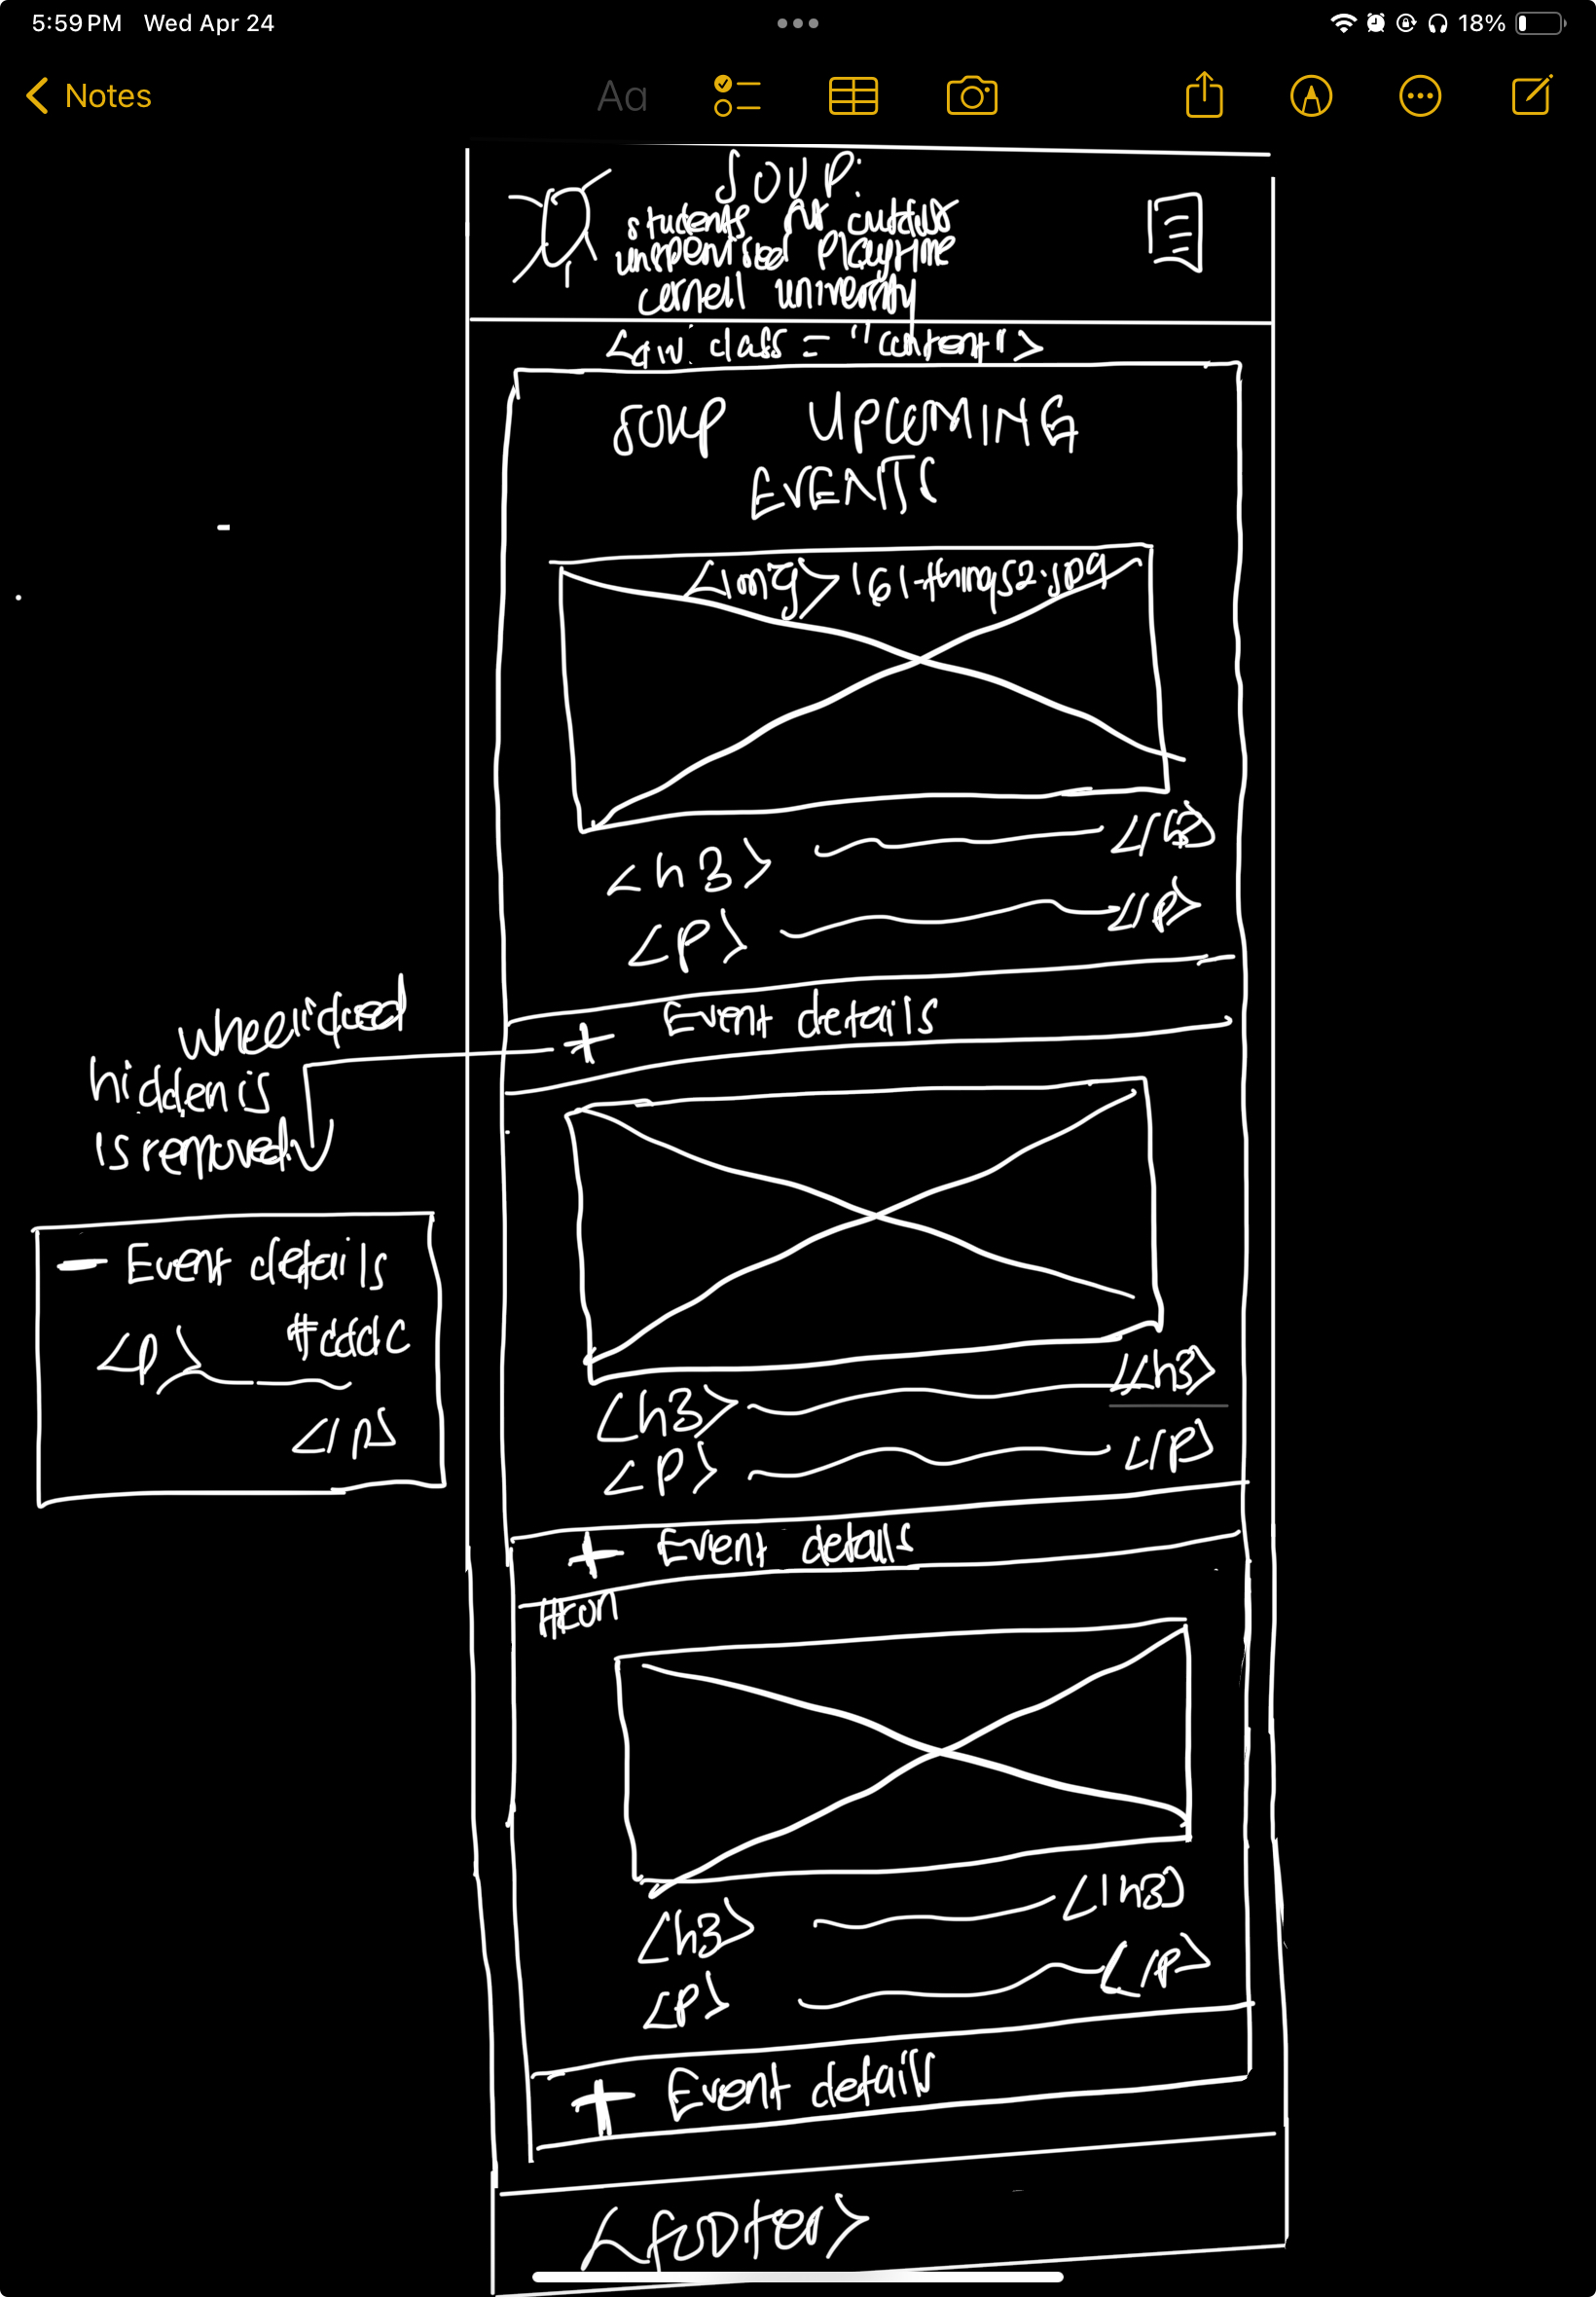 5:59 PM Wed Apr 24
18%
Notes
Aa
SOUP:
students for outdoor
unsupervised playtime
cornell university
<div class = "content">
SOUP UPCOMING
EVENTS
<img> 161-things2.jpg
<h3> </h3>
<p> </p>
+ Event details
when
hidden is
is removed
- Event details
<p>
</p>
<h3> </h3>
<p> </p>
+ Event details
<h3> </h3>
<p> </p>
+ Event details
<footer>